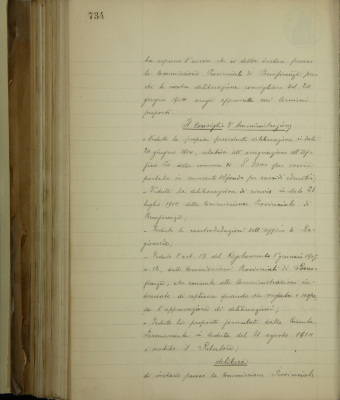 734
ha espresso l'avviso che si debba insistere presso
la Commissione Provinciale di Beneficenza perchè
la nostra deliberazione consigliare del 20
giugno 1914 venga approvata nei termini
proposti
Il Consiglio d'Amministrazione
- Veduta la propria precedente deliberazione in data
20 giugno 1914, relativa all'assegnazione all'Uf-
ficio della somma di
portarsi in aumento al fondo per sussidi
- Veduta la deliberazione di rinvio in data 21
luglio 1914 della Commissione Provinciale di
Beneficenza;
- Vedute le controdeduzioni dell'Ufficio di Ra-
gioneria;
- Veduto l'art. 13 del Regolamento 1° gennaio 1905
n. 12, sulle Commissioni Provinciali di Bene-
ficenza, che consente alle Amministrazioni in-
teressate di replicare quando sia
l'approvazione di deliberazioni;
- Vedute le proposte formulate dalla Giunta
in seduta del 21 agosto 1914
e sentito il Relatore;
delibera
di insistere presso la Commissione Provinciale